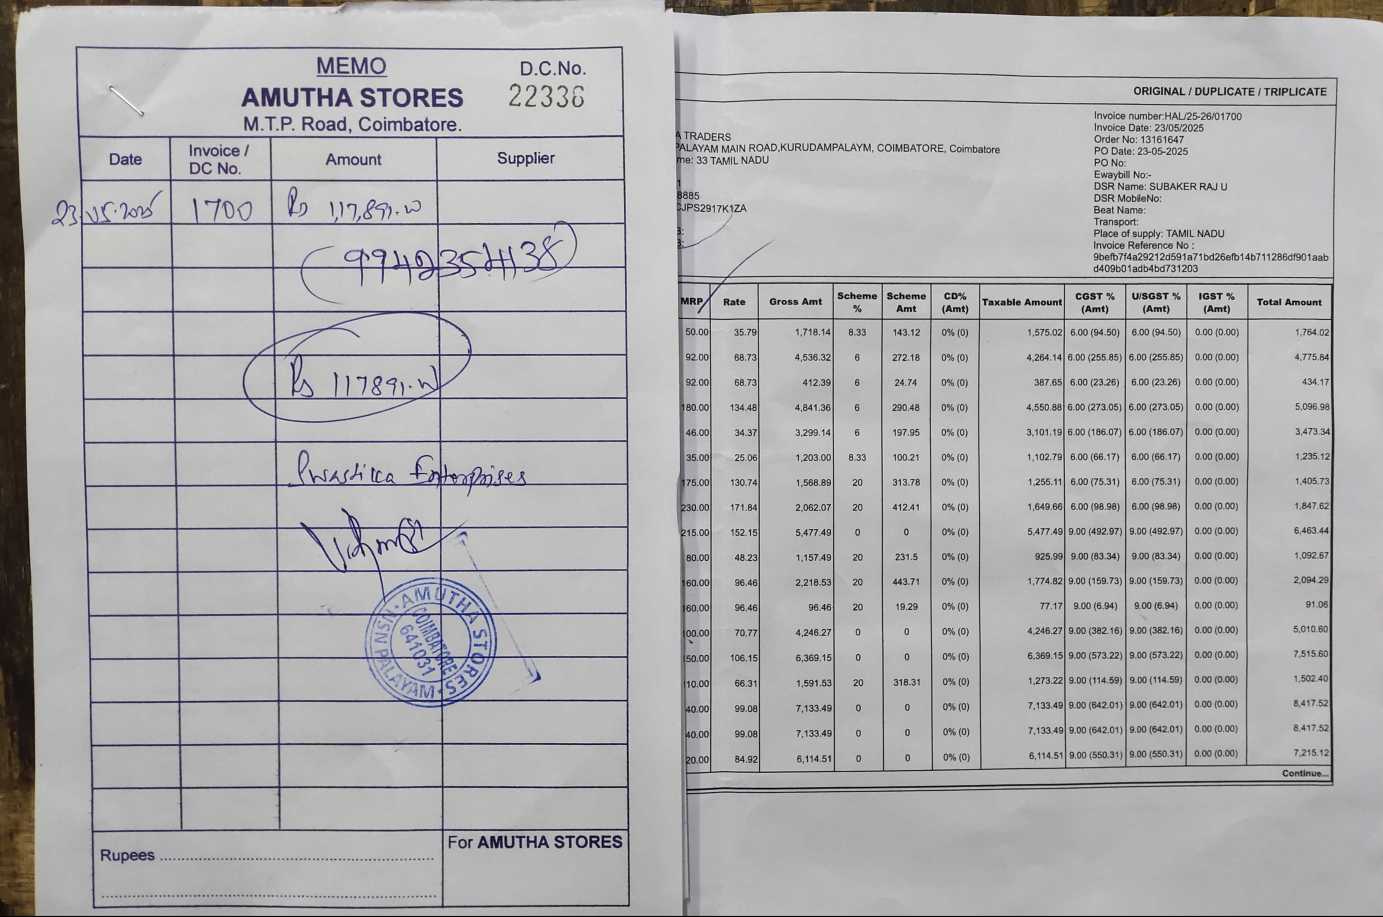 MEMO
D.C.No.
AMUTHA STORES
22336
M.T.P. Road, Coimbatore.
Date Invoice / DC No. Amount Supplier
23.05.2025 1700 Rs 1,17,891.00
9942354138
Rs 117891.00
Swastika Enterprises
AMUTHA STORES
NSN PALAYAM
COIMBATORE
641031
Rupees
For AMUTHA STORES
ORIGINAL / DUPLICATE / TRIPLICATE
A TRADERS
PALAYAM MAIN ROAD,KURUDAMPALAYM, COIMBATORE, Coimbatore
me: 33 TAMIL NADU
1
8885
CJPS2917K1ZA
Invoice number:HAL/25-26/01700
Invoice Date: 23/05/2025
Order No: 13161647
PO Date: 23-05-2025
PO No:
Ewaybill No:-
DSR Name: SUBAKER RAJ U
DSR MobileNo:
Beat Name:
Transport:
Place of supply: TAMIL NADU
Invoice Reference No :
9befb7f4a29212d591a71bd26efb14b711286df901aab
d409b01adb4bd731203
MRP Rate Gross Amt Scheme % Scheme Amt CD% (Amt) Taxable Amount CGST % (Amt) U/SGST % (Amt) IGST % (Amt) Total Amount
50.00 35.79 1,718.14 8.33 143.12 0% (0) 1,575.02 6.00 (94.50) 6.00 (94.50) 0.00 (0.00) 1,764.02
92.00 68.73 4,536.32 6 272.18 0% (0) 4,264.14 6.00 (255.85) 6.00 (255.85) 0.00 (0.00) 4,775.84
92.00 68.73 412.39 6 24.74 0% (0) 387.65 6.00 (23.26) 6.00 (23.26) 0.00 (0.00) 434.17
180.00 134.48 4,841.36 6 290.48 0% (0) 4,550.88 6.00 (273.05) 6.00 (273.05) 0.00 (0.00) 5,096.98
46.00 34.37 3,299.14 6 197.95 0% (0) 3,101.19 6.00 (186.07) 6.00 (186.07) 0.00 (0.00) 3,473.34
35.00 25.06 1,203.00 8.33 100.21 0% (0) 1,102.79 6.00 (66.17) 6.00 (66.17) 0.00 (0.00) 1,235.12
175.00 130.74 1,568.89 20 313.78 0% (0) 1,255.11 6.00 (75.31) 6.00 (75.31) 0.00 (0.00) 1,405.73
230.00 171.84 2,062.07 20 412.41 0% (0) 1,649.66 6.00 (98.98) 6.00 (98.98) 0.00 (0.00) 1,847.62
215.00 152.15 5,477.49 0 0 0% (0) 5,477.49 9.00 (492.97) 9.00 (492.97) 0.00 (0.00) 6,463.44
80.00 48.23 1,157.49 20 231.5 0% (0) 925.99 9.00 (83.34) 9.00 (83.34) 0.00 (0.00) 1,092.67
160.00 96.46 2,218.53 20 443.71 0% (0) 1,774.82 9.00 (159.73) 9.00 (159.73) 0.00 (0.00) 2,094.29
160.00 96.46 96.46 20 19.29 0% (0) 77.17 9.00 (6.94) 9.00 (6.94) 0.00 (0.00) 91.06
100.00 70.77 4,246.27 0 0 0% (0) 4,246.27 9.00 (382.16) 9.00 (382.16) 0.00 (0.00) 5,010.60
50.00 106.15 6,369.15 0 0 0% (0) 6,369.15 9.00 (573.22) 9.00 (573.22) 0.00 (0.00) 7,515.60
10.00 66.31 1,591.53 20 318.31 0% (0) 1,273.22 9.00 (114.59) 9.00 (114.59) 0.00 (0.00) 1,502.40
40.00 99.08 7,133.49 0 0 0% (0) 7,133.49 9.00 (642.01) 9.00 (642.01) 0.00 (0.00) 8,417.52
40.00 99.08 7,133.49 0 0 0% (0) 7,133.49 9.00 (642.01) 9.00 (642.01) 0.00 (0.00) 8,417.52
20.00 84.92 6,114.51 0 0 0% (0) 6,114.51 9.00 (550.31) 9.00 (550.31) 0.00 (0.00) 7,215.12
Continue...